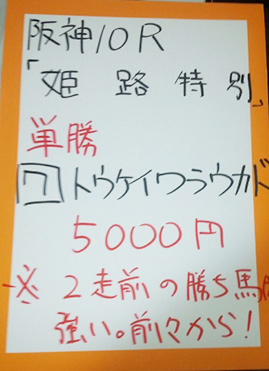 阪神10R
「姫路特別」
単勝
7 トウケイワラウカド
5000円
※2走前の勝ち馬
強い。前々から!